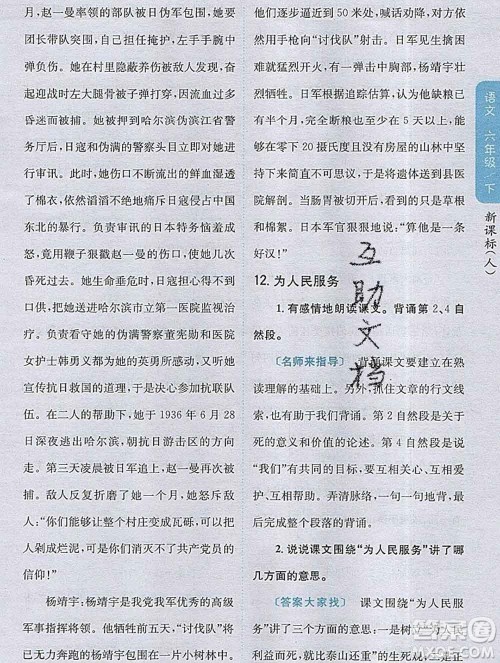 月，赵一曼的部队被日伪军包围，她要
团长带队突围，自己担任掩护，左手手腕中
弹负伤。她在村里隐蔽养伤被日军发现，
奋起迎战时左大腿骨被子弹打穿，因流血过多
昏迷而被俘。她被押到哈尔滨伪滨江省警
务厅。日寇和伪满的警察头目立即对她进
行审讯。此时，她伤口不断流出的鲜血浸湿
了棉衣，依然大声痛斥日寇侵占中国
东北的暴行。负责审讯的日本特务恼羞成
怒，竟用鞭子狠戳赵一曼的伤口，她几次
昏死过去。她生命垂危时，日寇不想让她死
掉，把她送到哈尔滨市立第一医院监视治
疗。负责看守她的伪满警察董宪勋和医院
女护士韩勇义为她的英勇所感动，一直向他
宣传抗日救国的道理，决心参加抗联队
伍。在二人的帮助下，她于 1936 年 6 月 28
日深夜逃出哈尔滨，朝抗日游击区的方向
走。第三天凌晨被日军追上，赵一曼再次被
捕。敌人反复拷问了她一个月，她怒斥敌
人：“你们能够让整个村庄变成瓦砾，可以把
人剁成烂泥，可是你们消灭不了共产党员的
信仰！”
杨靖宇：杨靖宇是我党我军优秀的高级
军事指挥将领。他牺牲前五天，“讨伐队”将
已无力奔跑的杨靖宇包围在一片小树林中。
他们逐步逼近到 50 米处，喊话劝降，
杨靖宇向“讨伐队”射击。日军见生擒
困难，就猛烈开火，有一弹击中胸部，杨靖宇壮
烈牺牲。日军根据追踪估算，杨靖宇已缺粮
有半个月，完全断粮的时间也在 5 天以上，能
够在零下 20 摄氏度且没有房屋的山林中坚
持下来简直不可思议，于是将遗体送到县医
院解剖。当肠胃被切开时，看到的只有草根
和棉絮。日本军官狠狠地说：“算他是一条
好汉！”
12. 为人民服务
1. 有感情地朗读课文。背诵第 2、4 自
然段。
〔名师来指导〕　背诵课文要建立在熟
读理解的基础上。另外，抓住文章的行文线
索，也有助于我们背诵。第 2 自然段是关于
死的意义和价值的讨论。第 4 自然段是说
“我们”有共同的目标，要互相关心，互相爱
护，互相帮助。弄清脉络，一句一句地背，最后
完成整个段落的背诵。
2. 说说课文围绕“为人民服务”讲了哪
几方面的意思。
〔答案大家找〕　课文围绕“为人民服
务”讲了三个方面的意思：一是树立为人民
利益而死，就比泰山还重的
语文　六年级／下
新课标（人）
互助文档